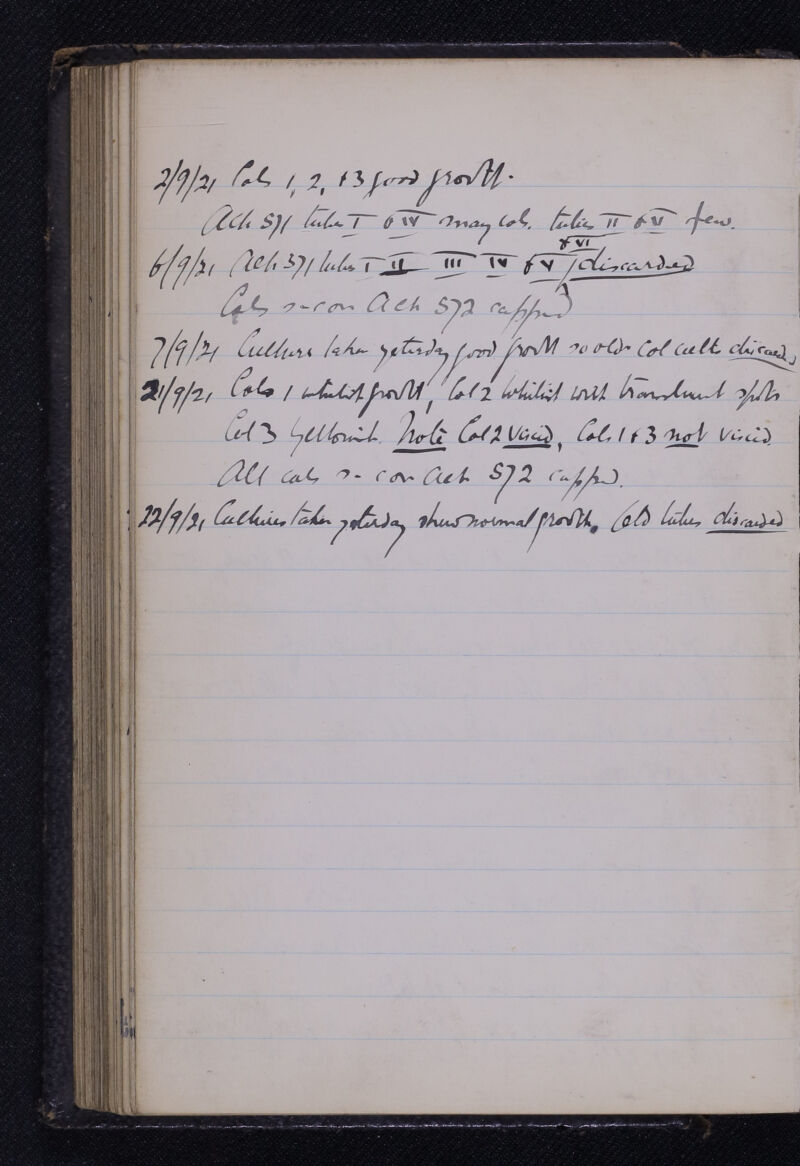 2/9/21 Cols 1, 2, + 3 good growth.
Ach S71 tubes I & IV many cols. tubes II & V few.
& VI
6/9/21 Ach S71 tubes I II III IV & V discarded
Cols Ach S72 capped
7/9/21 Cultures taken yesterday good growth so older col cults discarded
21/9/21 Cols 1 whitish growth, Col 2 whitish with translucent spots
Col 3 yellowish. Note Col 2 viscid, Cols 1 + 3 not viscid.
All cols Ach S72 capped.
22/9/21 Cultures taken yesterday show normal growth. Old tubes discarded